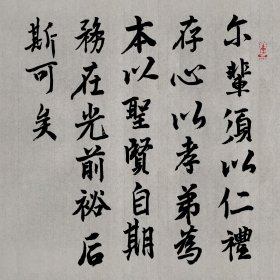 尔輩須以仁禮
存心以孝弟為
本以聖賢自期
務在光前裕后
斯可矣